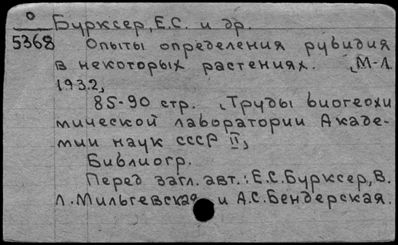 о Бурксер, Е.С. и др.
5368 Опыты определения рубидия
в некоторых растениях. М-Л
1932,
85-90 стр. "Труды биогеохи
мической лаборатории Акаде-
мии наук СССР II,
Библиогр.
Перед загл. авт.: Е.С. Бурксер, В.
Л. Мильгевская и А.С. Бендерская.